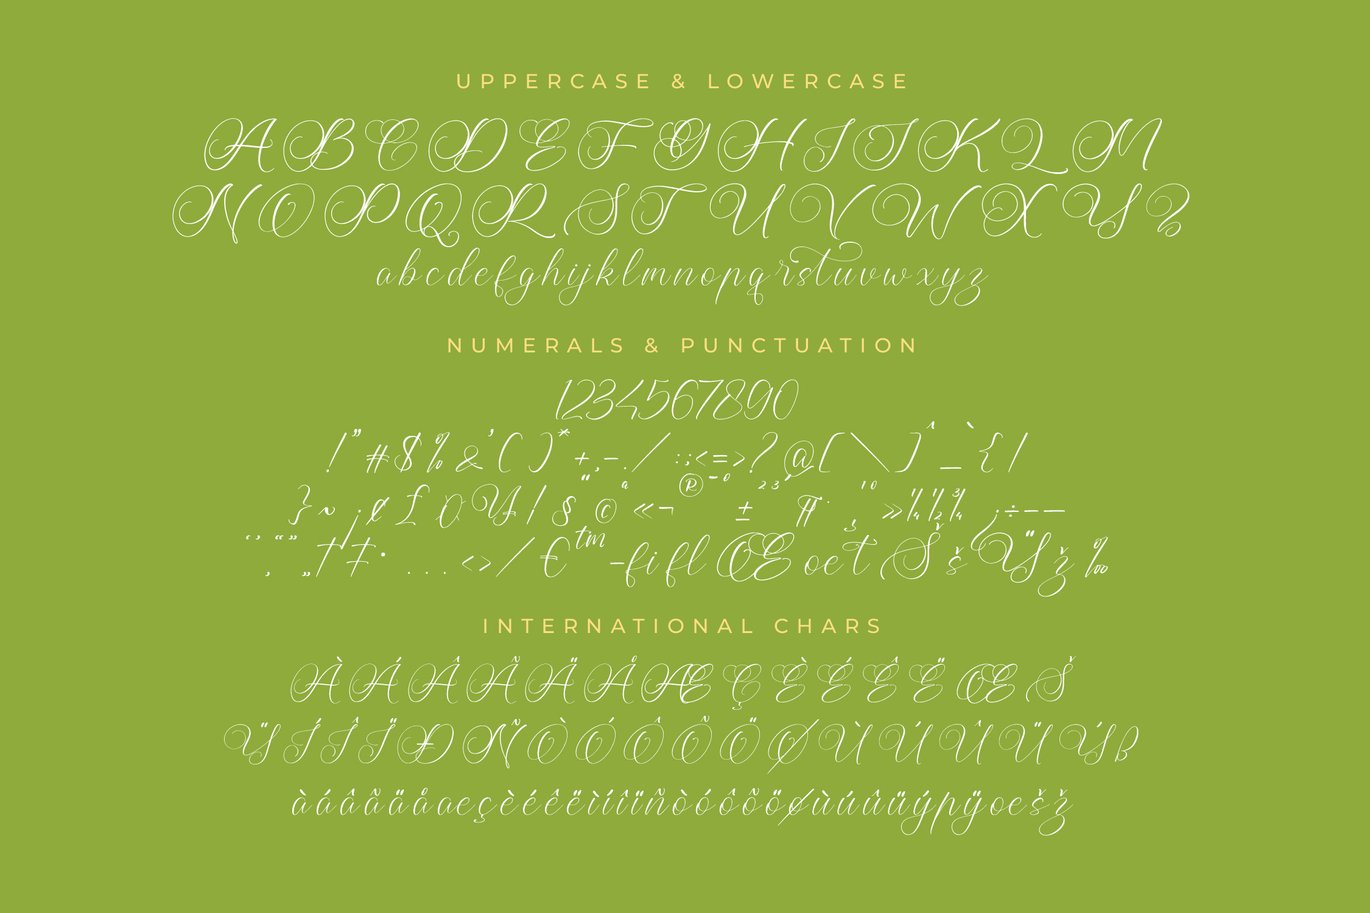 UPPERCASE & LOWERCASE
ABCDEFGHIJKLM
NOPQRSTUVWXYZ
abcdefghijklmnopqrstuvwxyz
NUMERALS & PUNCTUATION
1234567890
!"#$%&'()*+,-./:;<=>?@[\]^_`{|
}~¡¢£¤¥¦§¨©ª«¬®¯°±²³´¶·¸¹º»¼½¾¿÷–—
‘’‚“”„†‡•...‹›⁄€™−fiflŒœŁŠšŸž‰
INTERNATIONAL CHARS
ÀÁÂÃÄÅÆÇÈÉÊËŒŠ
ŸÍÎÏÐÑÒÓÔÕÖØÙÚÛÜÝß
àáâãäåæçèéêëìíîïñòóôõöøùúûüýþÿœšž